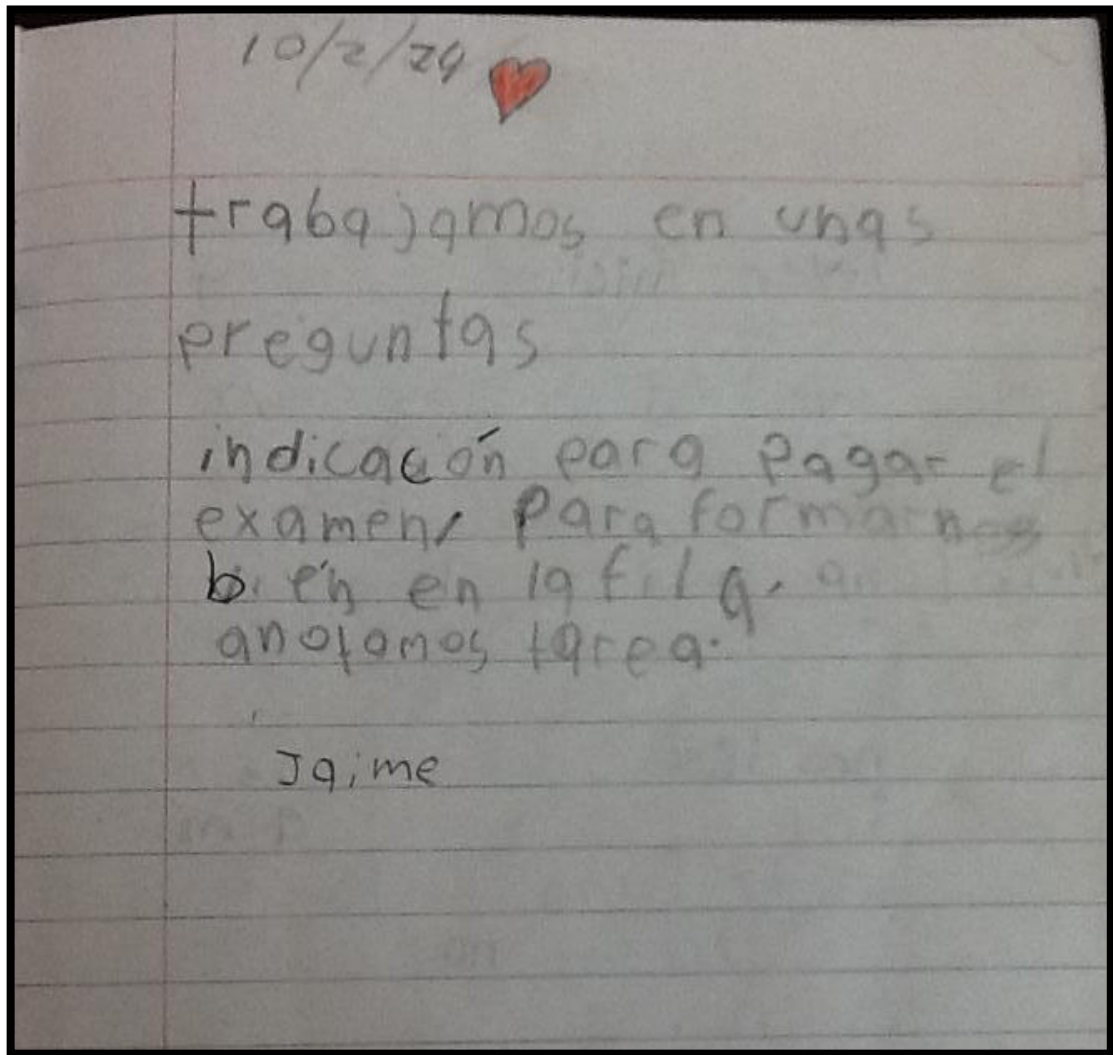 10/2/24
trabajamos en unas
preguntas
indicación para pagar el
examen, para formarnos
bien en la fila.
anotamos tarea.
Jaime